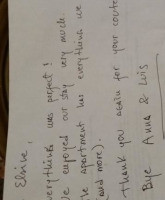 Elisive,
everything was perfect!
We enjoyed our stay very much.
The apartment has everything we
and more).
thank you again for your
Bye Anna & Luis